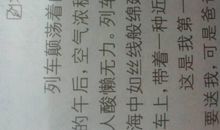 列车颠荡着
的午后，空气浓稠
人酸懒无力。列车
海中如丝线般绵
车上，带着一种近
这是我第一
要送我，可是爸